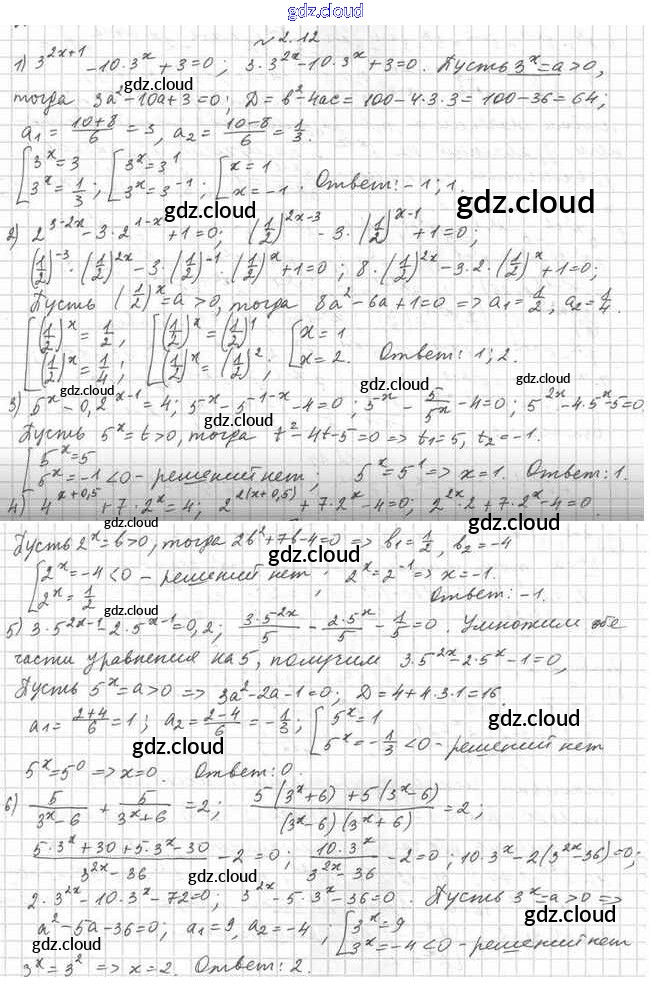 gdz.cloud
№ 2.12
1) 3^{2x+1} - 10·3^x + 3 = 0; 3·3^{2x} - 10·3^x + 3 = 0. Пусть 3^x = a > 0,
gdz.cloud gdz.cloud
тогда 3a² - 10a + 3 = 0; D = b² - 4ac = 100 - 4·3·3 = 100 - 36 = 64;
a₁ = (10+8)/6 = 3, a₂ = (10-8)/6 = 1/3.
[3^x = 3 [3^x = 3^1 [x = 1
[3^x = 1/3; [3^x = 3^{-1}; [x = -1. Ответ: -1; 1.
gdz.cloud gdz.cloud
2) 2^{3-2x} - 3·2^{1-x} + 1 = 0; (1/2)^{2x-3} - 3·(1/2)^{x-1} + 1 = 0;
(1/2)^{-3}·(1/2)^{2x} - 3·(1/2)^{-1}·(1/2)^x + 1 = 0; 8·(1/2)^{2x} - 3·2·(1/2)^x + 1 = 0;
gdz.cloud gdz.cloud
Пусть (1/2)^x = a > 0, тогда 8a² - 6a + 1 = 0 => a₁ = 1/2, a₂ = 1/4.
[(1/2)^x = 1/2, [(1/2)^x = (1/2)^1 [x = 1
[(1/2)^x = 1/4; [(1/2)^x = (1/2)^2; [x = 2. Ответ: 1; 2.
gdz.cloud gdz.cloud gdz.cloud
3) 5^x - 0,2^{x-1} = 4; 5^x - 5^{1-x} - 4 = 0; 5^x - 5/5^x - 4 = 0; 5^{2x} - 4·5^x - 5 = 0
gdz.cloud
Пусть 5^x = t > 0, тогда t² - 4t - 5 = 0 => t₁ = 5, t₂ = -1.
[5^x = 5
[5^x = -1 < 0 - решений нет; 5^x = 5^1 => x = 1. Ответ: 1.
gdz.cloud gdz.cloud
4) 4^{x+0,5} + 7·2^x = 4; 2^{2(x+0,5)} + 7·2^x - 4 = 0; 2^{2x}·2 + 7·2^x - 4 = 0.
Пусть 2^x = b > 0, тогда 2b² + 7b - 4 = 0 => b₁ = 1/2, b₂ = -4
gdz.cloud
[2^x = -4 < 0 - решений нет; 2^x = 2^{-1} => x = -1.
[2^x = 1/2 Ответ: -1.
gdz.cloud gdz.cloud
5) 3·5^{2x-1} - 2·5^{x-1} = 0,2; 3·5^{2x}/5 - 2·5^x/5 - 1/5 = 0. Умножим обе
части уравнения на 5, получим 3·5^{2x} - 2·5^x - 1 = 0,
gdz.cloud
Пусть 5^x = a > 0 => 3a² - 2a - 1 = 0; D = 4 + 4·3·1 = 16.
gdz.cloud gdz.cloud
a₁ = (2+4)/6 = 1; a₂ = (2-4)/6 = -1/3; [5^x = 1
[5^x = -1/3 < 0 - решений нет
gdz.cloud
5^x = 5^0 => x = 0. Ответ: 0.
gdz.cloud
6) 5/(3^x-6) + 5/(3^x+6) = 2; (5(3^x+6) + 5(3^x-6))/((3^x-6)(3^x+6)) = 2;
gdz.cloud
(5·3^x + 30 + 5·3^x - 30)/(3^{2x} - 36) - 2 = 0; 10·3^x/(3^{2x} - 36) - 2 = 0; 10·3^x - 2(3^{2x} - 36) = 0;
gdz.cloud
2·3^{2x} - 10·3^x - 72 = 0; 3^{2x} - 5·3^x - 36 = 0. Пусть 3^x = a > 0 =>
gdz.cloud gdz.cloud
a² - 5a - 36 = 0; a₁ = 9, a₂ = -4; [3^x = 9
gdz.cloud [3^x = -4 < 0 - решений нет
3^x = 3^2 => x = 2. Ответ: 2.
gdz.cloud